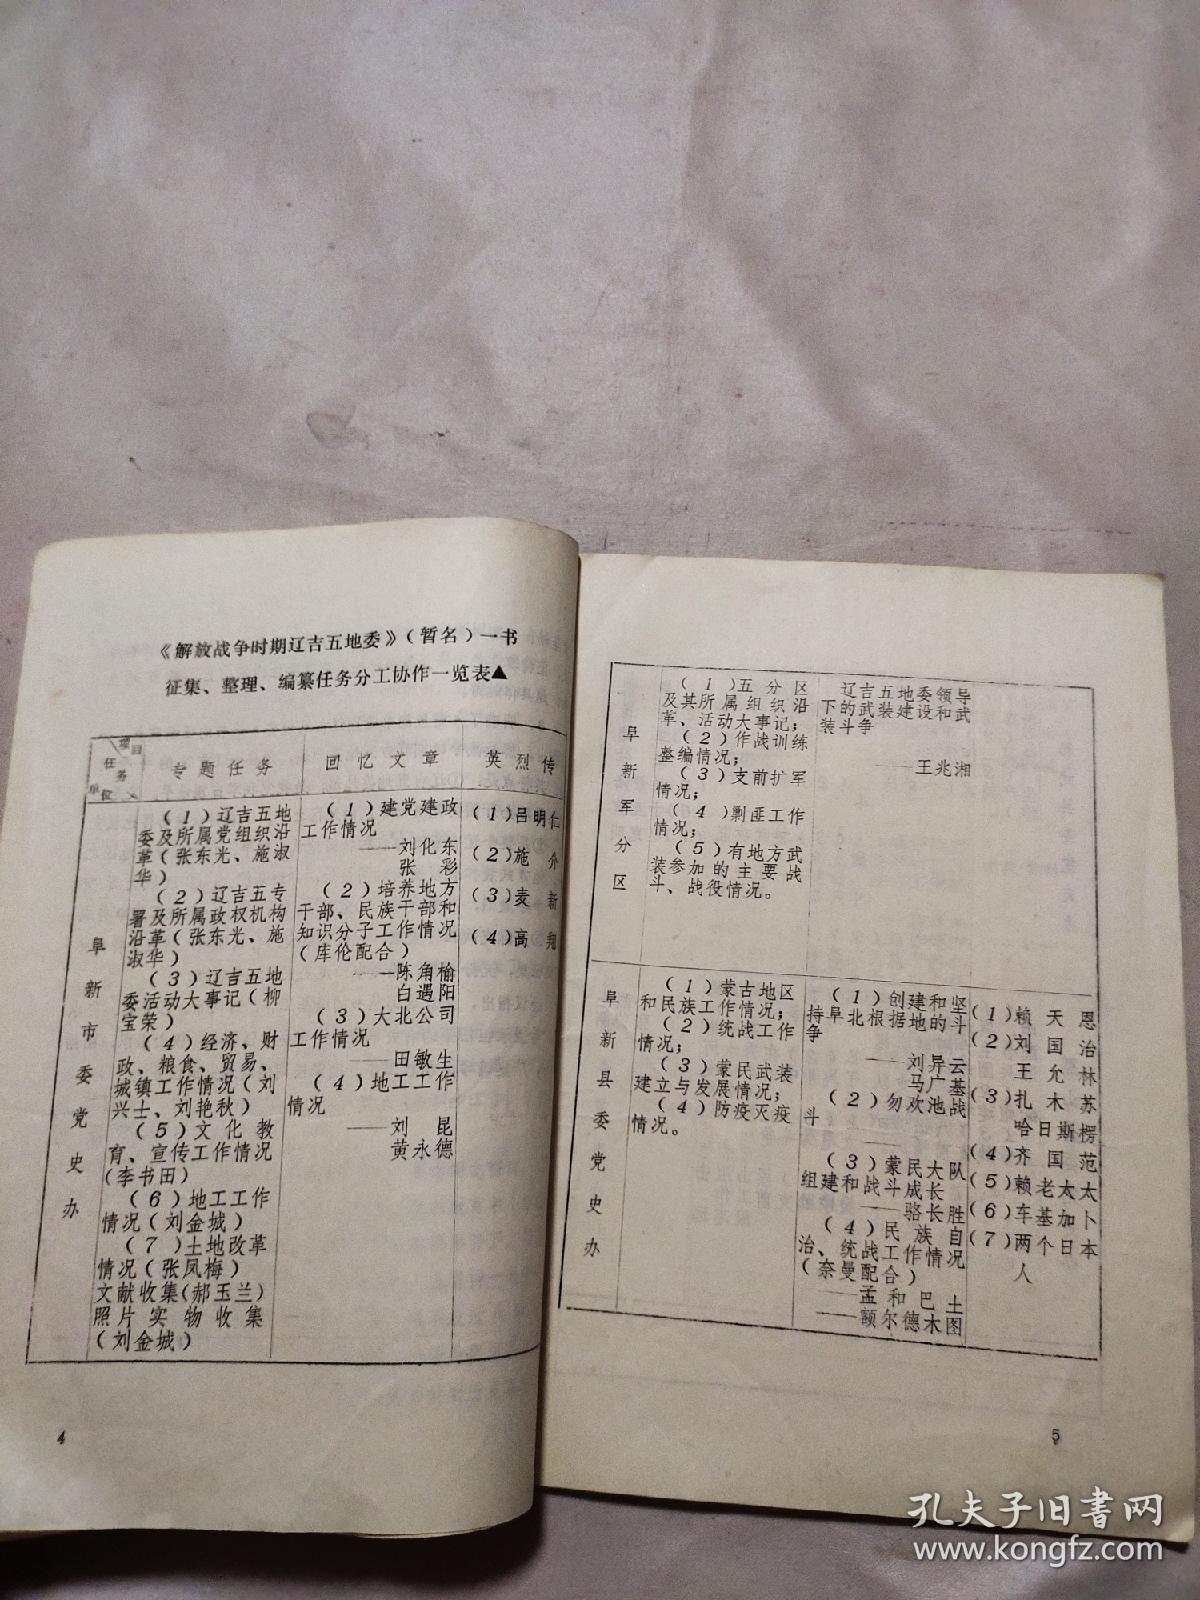 《解放战争时期辽吉五地委》(暂名)一书
征集、整理、编纂任务分工协作一览表▲
项目
任务
单位
专题任务
回忆文章
英烈传
阜新市委党史办
(1)辽吉五地
委及所属党组织沿
革(张东光、施淑
华)
(2)辽吉五专
署及所属政权机构
沿革(张东光、施
淑华)
(3)辽吉五地
委活动大事记(柳
宝荣)
(4)经济、财
政、粮食、贸易、
城镇工作情况(刘
兴士、刘艳秋)
(5)文化教
育、宣传工作情况
(李书田)
(6)地工工作
情况(刘金城)
(7)土地改革
情况(张凤梅)
文献收集(郝玉兰)
照片实物收集
(刘金城)
(1)建党建政
工作情况
——刘化东
张彩
(2)培养地方
干部、民族干部和
知识分子工作情况
(库伦配合)
——陈角榆
白遇阳
(3)大北公司
工作情况
——田敏生
(4)地工工作
情况
——刘昆
黄永德
(1)吕明仁
(2)施介
(3)麦新
(4)高翔
4
阜新军分区
(1)五分区
及其所属组织沿
革、活动大事记;
(2)作战训练
整编情况;
(3)支前扩军
情况;
(4)剿匪工作
情况;
(5)有地方武
装参加的主要战
斗、战役情况。
辽吉五地委领导
下的武装建设和武
装斗争
——王兆湘
阜新县委党史办
(1)蒙古地区
和民族工作情况;
(2)统战工作
情况;
(3)蒙民武装
建立与发展情况;
(4)防疫灭疫
情况。
(1)创建和坚
持阜北根据地的斗
争
——刘异云
马广基
(2)勿欢池战
斗
——
(3)蒙民大队
组建和战斗成长
——骆长胜
(4)民族自
治、统战工作情况
(奈曼配合)
——孟和巴土
——额尔德木图
(1)赖天恩
(2)刘国治
王允林
(3)扎木苏
哈日斯楞
(4)齐国范
(5)赖老太太
(6)车基加卜
(7)两个日本
人
5
孔夫子旧书网
www.kongfz.com